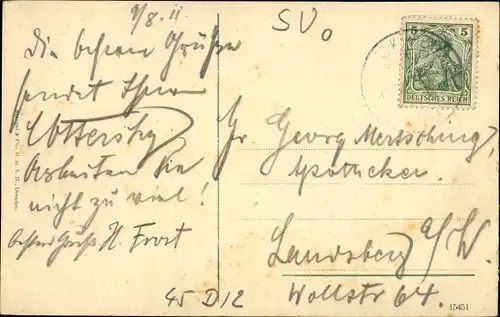 9/8. 11
SV0
Die besten Grüße
sendet Ihnen
Arbeiten Sie
nicht zu viel!
Besten Gruß H. Frost
5 5
DEUTSCHES REICH
Hr. Georg Mertsching,
Apotheker
Landsberg a/W.
Wollstr 64.
45 D12
15451